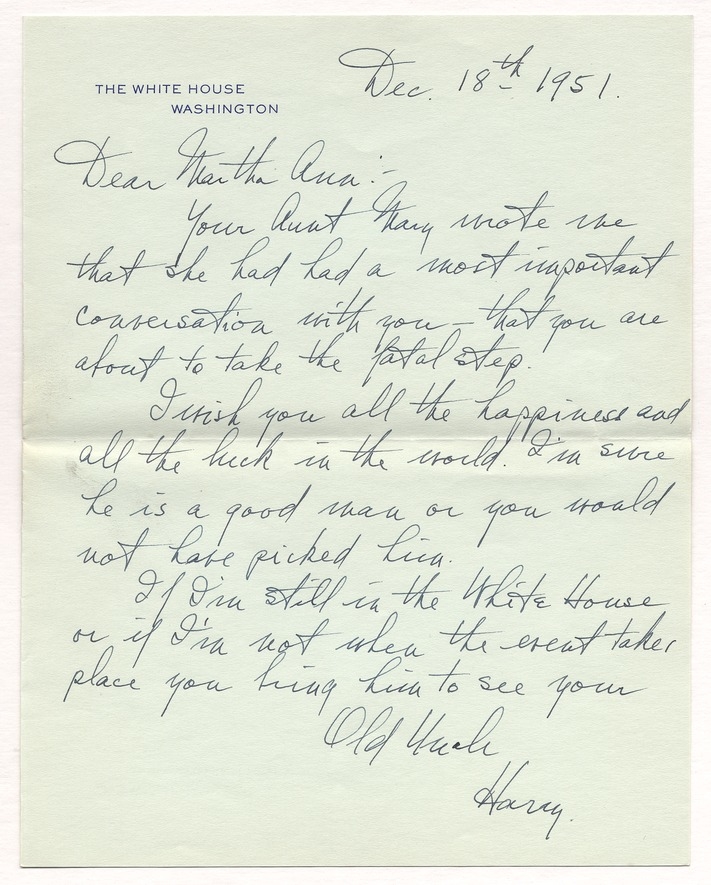 THE WHITE HOUSE
WASHINGTON
Dec. 18th 1951.
Dear Martha Ann:-
Your Aunt Mary wrote me
that she had had a most important
conversation with you – that you are
about to take the fatal step.
I wish you all the happiness and
all the luck in the world. I'm sure
he is a good man or you would
not have picked him.
If I'm still in the White House
or if I'm not when the event takes
place you bring him to see your
Old Uncle
Harry.